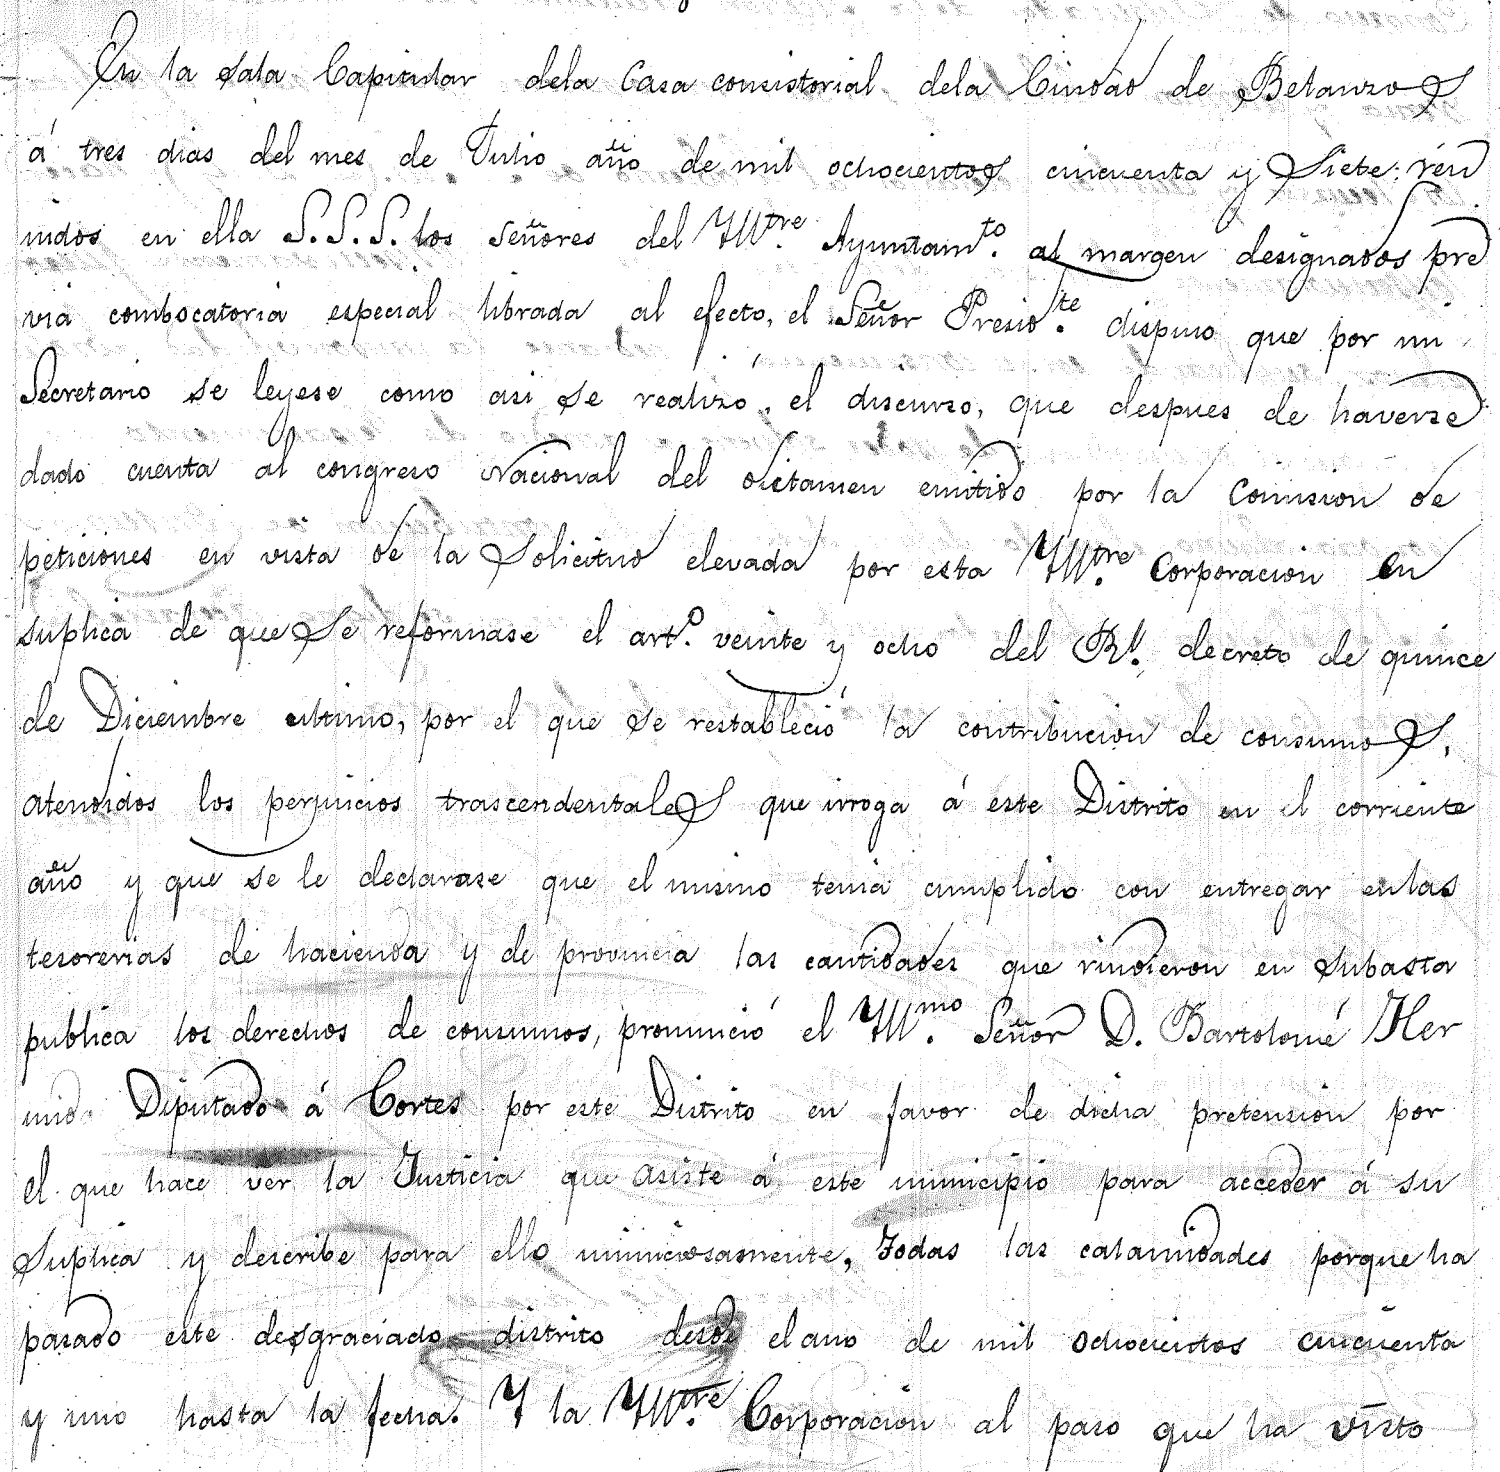 En la Sala Capitular dela Casa consistorial dela Ciudad de Betanzos
á tres dias del mes de Julio año de mil ochocientos cincuenta y Siete: reu
nidos en ella S.S.S. los Señores del Ylltre. Ayuntamto. al margen designados pre
via combocatoria especial librada al efecto, el Señor Presidte. dispuso que por mi
Secretario se leyese como asi se realizó, el discurso, que despues de haverse
dado cuenta al congreso Nacional del dictamen emitido por la Comision de
peticiones en vista de la Solicitud elevada por esta Ylltre. Corporacion en
suplica de que Se reformase el arto. veinte y ocho del Rl. decreto de quince
de Diciembre ultimo, por el que se restableció la contribucion de consumos,
atendidos los perjuicios trascendentales que irroga á este Distrito en el corriente
año y que se le declarase que el mismo tenia cumplido con entregar enlas
tesorerias de hacienda y de provincia las cantidades que rindieron en Subasta
publica los derechos de consumos, pronunció el Yllmo. Señor D. Bartolomé Her
mida Diputado á Cortes por este Distrito en favor de dicha pretension por
el que hace ver la Justicia que asiste á este municipio para acceder á su
Suplica y describe para ello minuciosamente, todas las calamidades porque ha
pasado este desgraciado distrito desde el ano de mil ochocientos cincuenta
y uno hasta la fecha. Y la Ylltre. Corporacion al paso que ha visto